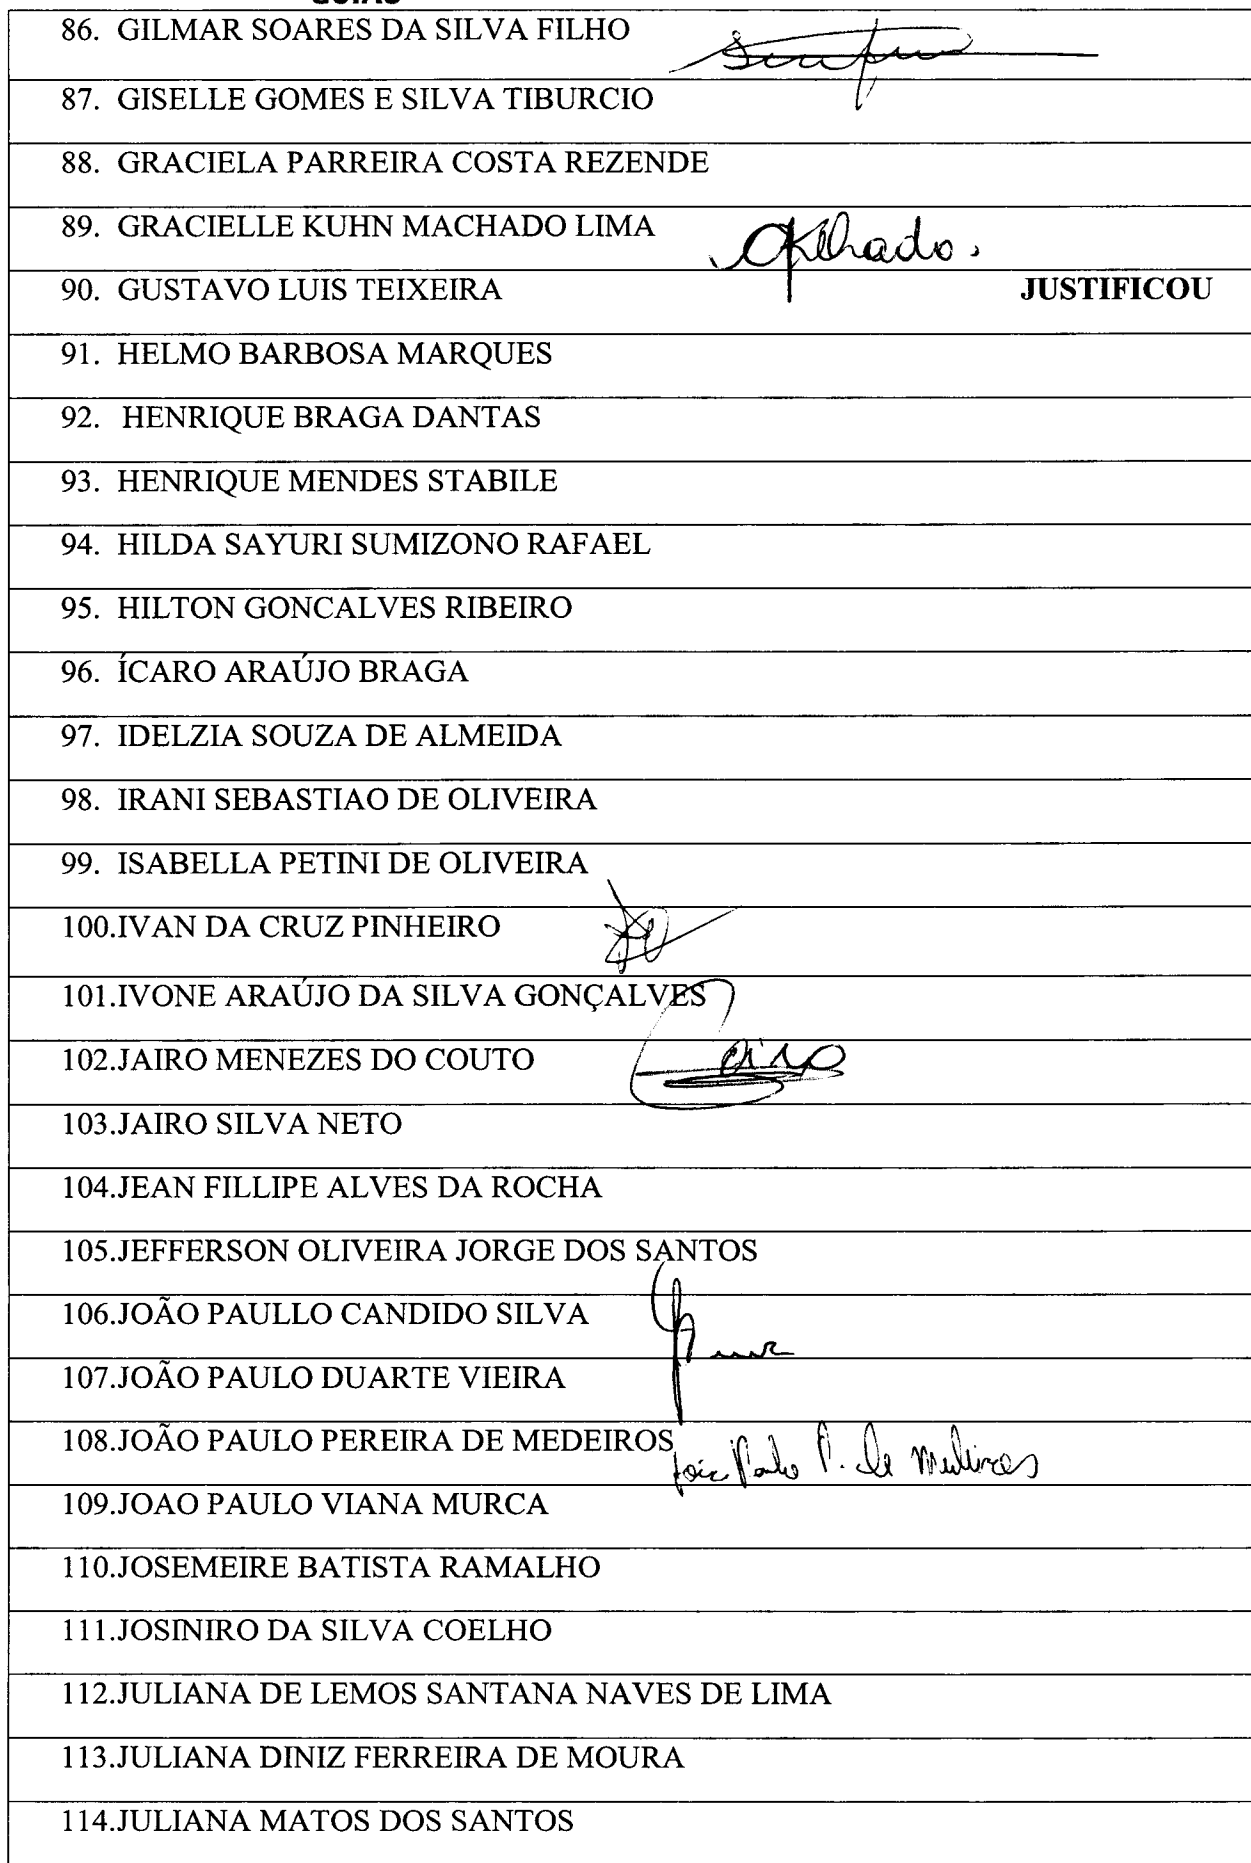 GOIÁS
86. GILMAR SOARES DA SILVA FILHO
87. GISELLE GOMES E SILVA TIBURCIO
88. GRACIELA PARREIRA COSTA REZENDE
89. GRACIELLE KUHN MACHADO LIMA
90. GUSTAVO LUIS TEIXEIRA JUSTIFICOU
91. HELMO BARBOSA MARQUES
92. HENRIQUE BRAGA DANTAS
93. HENRIQUE MENDES STABILE
94. HILDA SAYURI SUMIZONO RAFAEL
95. HILTON GONCALVES RIBEIRO
96. ÍCARO ARAÚJO BRAGA
97. IDELZIA SOUZA DE ALMEIDA
98. IRANI SEBASTIAO DE OLIVEIRA
99. ISABELLA PETINI DE OLIVEIRA
100.IVAN DA CRUZ PINHEIRO
101.IVONE ARAÚJO DA SILVA GONÇALVES
102.JAIRO MENEZES DO COUTO Jairo
103.JAIRO SILVA NETO
104.JEAN FILLIPE ALVES DA ROCHA
105.JEFFERSON OLIVEIRA JORGE DOS SANTOS
106.JOÃO PAULLO CANDIDO SILVA
107.JOÃO PAULO DUARTE VIEIRA
108.JOÃO PAULO PEREIRA DE MEDEIROS João Paulo P. de Medeiros
109.JOAO PAULO VIANA MURCA
110.JOSEMEIRE BATISTA RAMALHO
111.JOSINIRO DA SILVA COELHO
112.JULIANA DE LEMOS SANTANA NAVES DE LIMA
113.JULIANA DINIZ FERREIRA DE MOURA
114.JULIANA MATOS DOS SANTOS